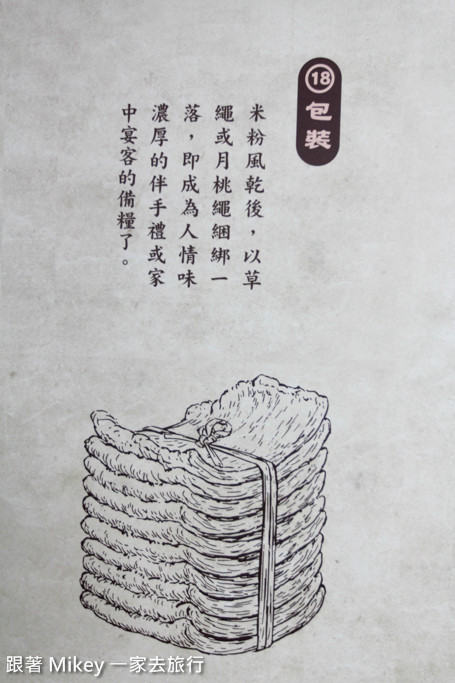 ⑱包裝
米粉風乾後，以草
繩或月桃繩綑綁一
落，即成為人情味
濃厚的伴手禮或家
中宴客的備糧了。
跟著 Mikey 一家去旅行